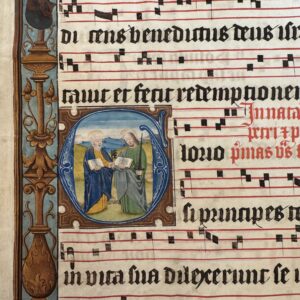 di cens benedictus deus isr
tauit et fecit redemptionem
In nata
petri et p
Glorio
pimas vs
si principes t
in vita sua dilexerunt se i